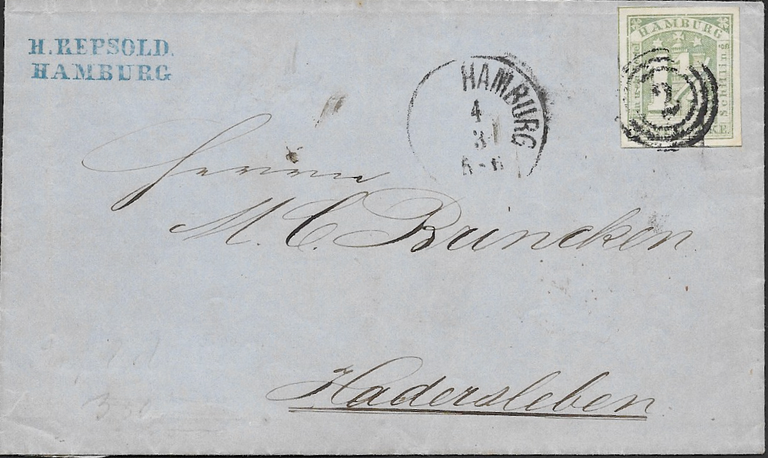 H. REPSOLD.
HAMBURG
HAMBURG
4
3
HAMBURG
2
Herrn
M. C. Brincken
Hadersleben